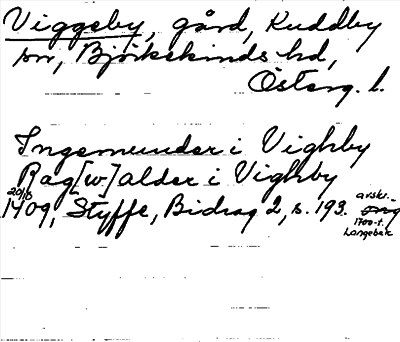 Viggeby, gård, Kuddby
sn, Björkekinds hd,
Österg. l.
Ingemunder i Vighby
Rag[w]alder i Vighby
20/6
1409, Styffe, Bidrag 2, s. 193.
avskr.
1700-t.
Langebek